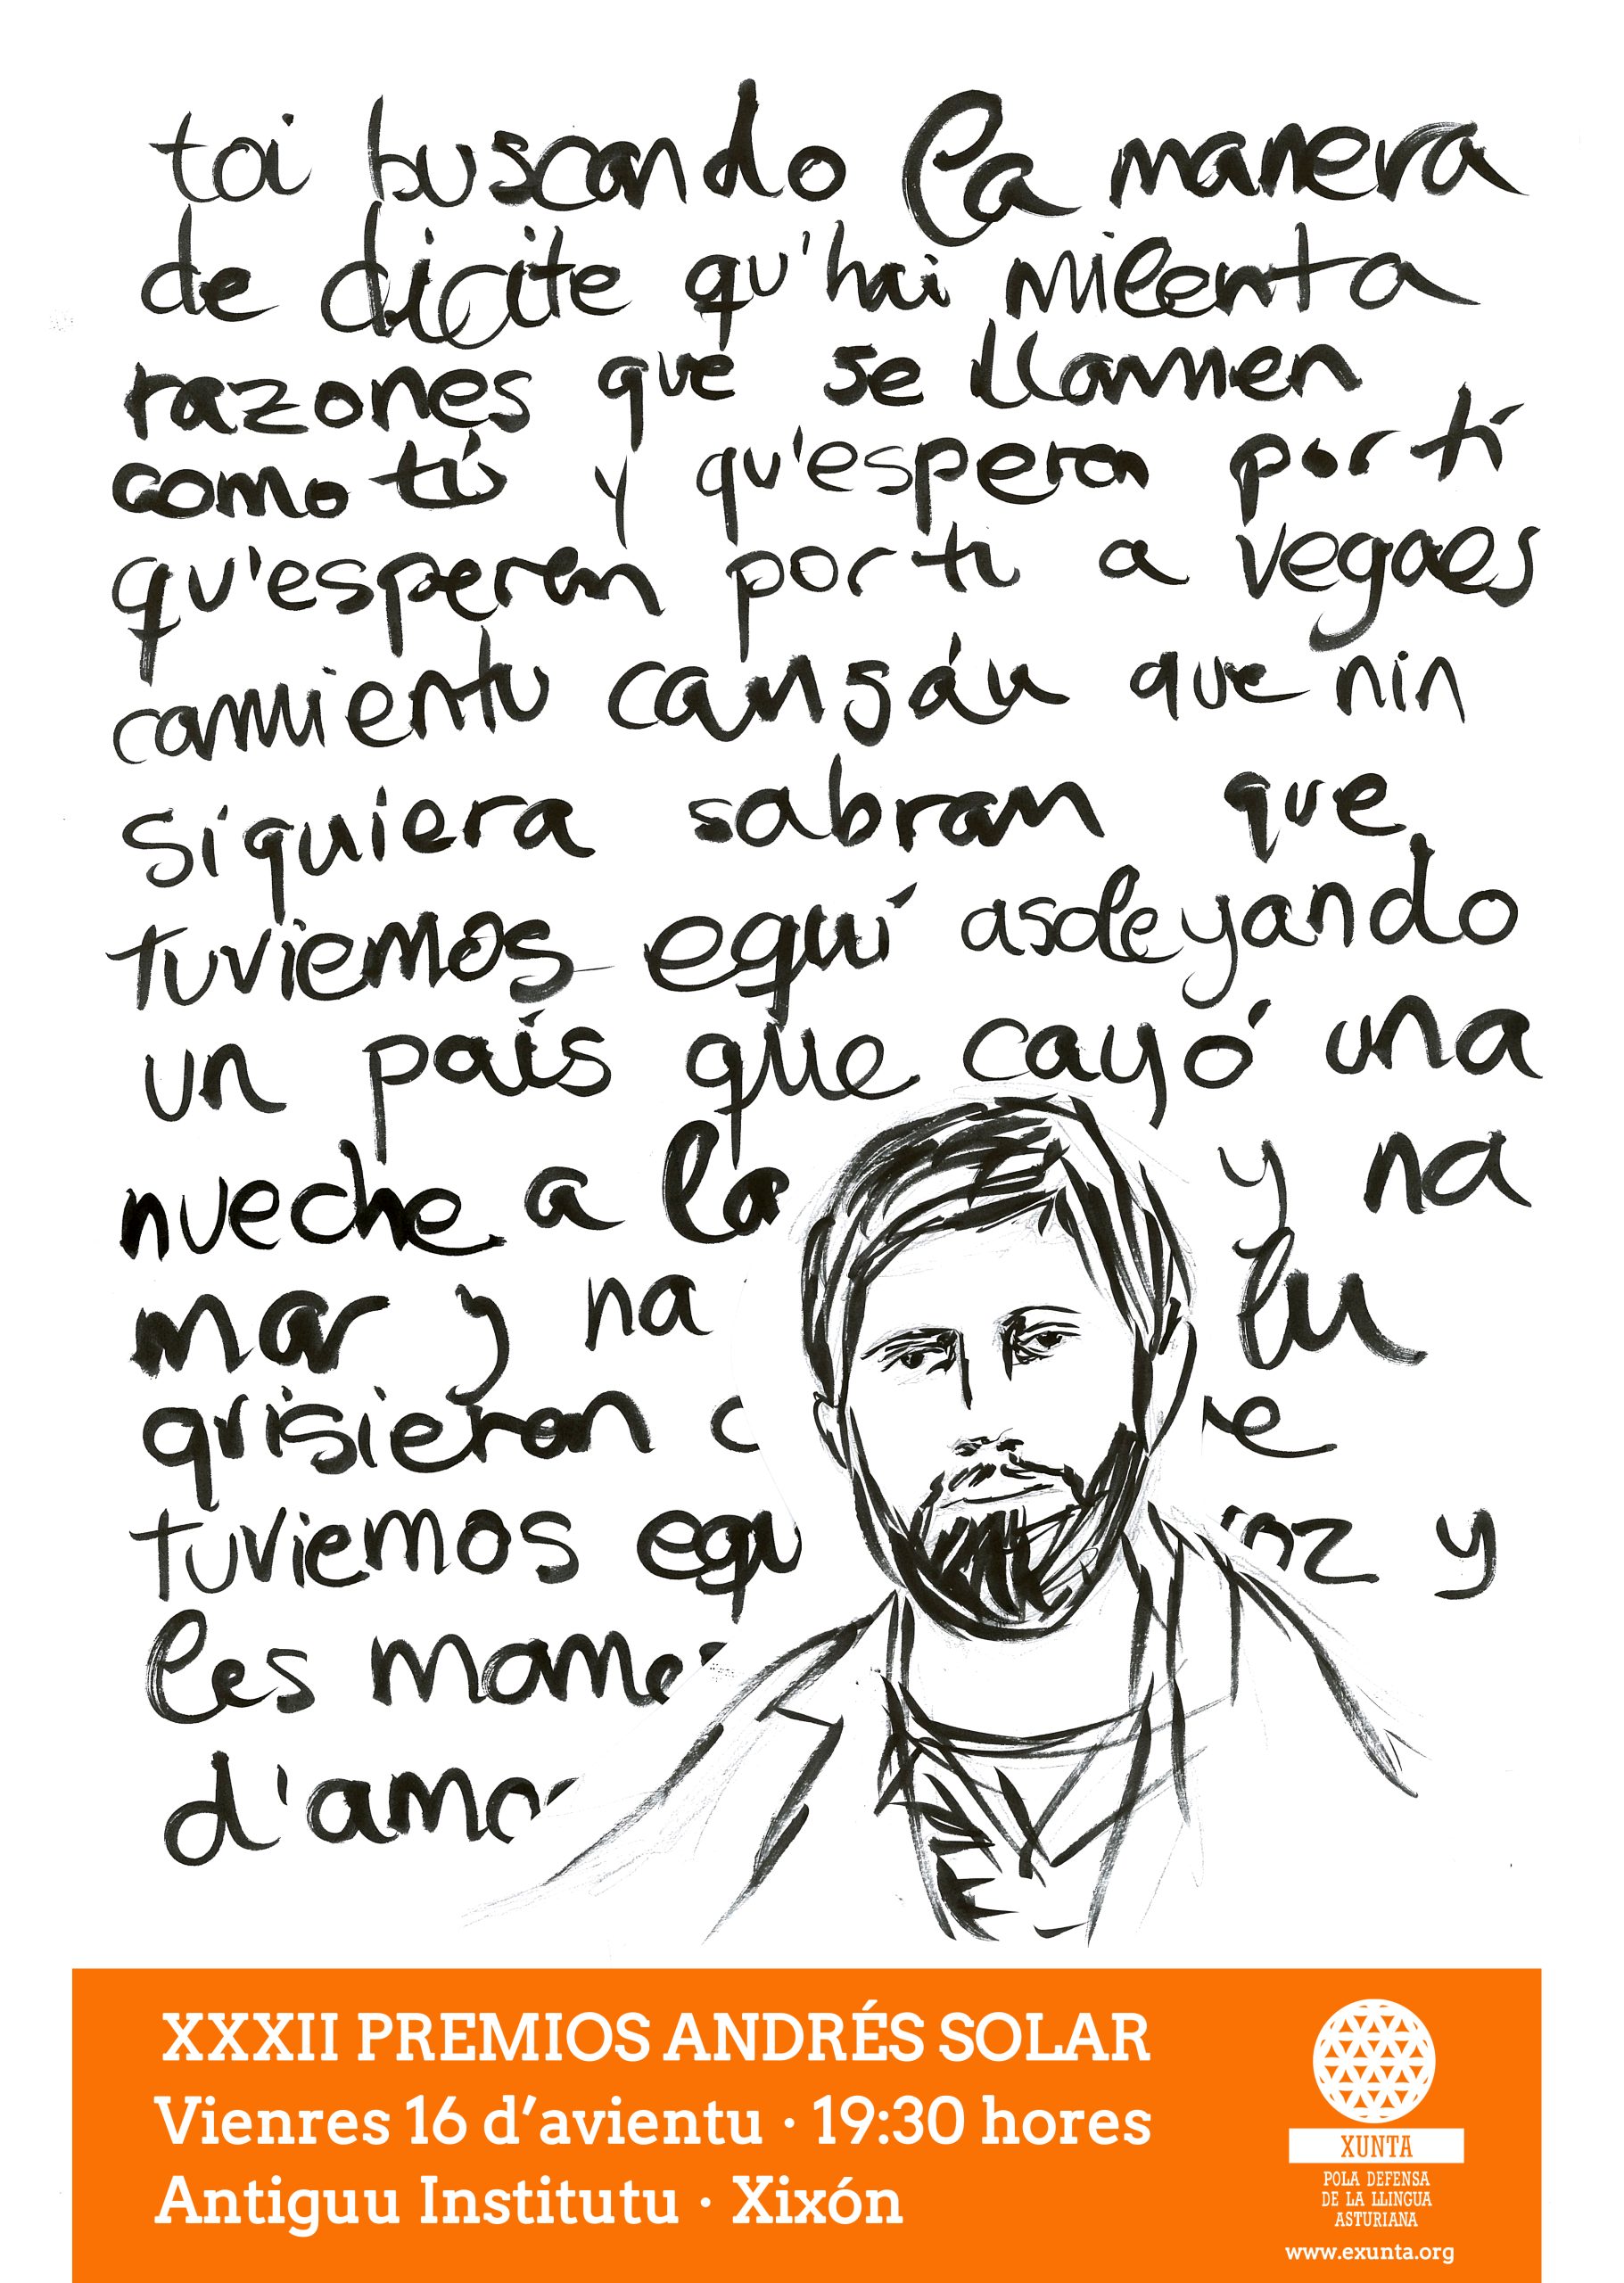 toi buscando la manera
de dicite qu'hai milenta
razones que se llamen
como tú y qu'esperen por tí
qu'esperen por ti a vegaes
camientu cansáu que nin
siquiera sabran que
tuviemos equí asoleyando
un país que cayó una
nueche a la y na
mar y na lu
quisieron
tuviemos y
les
XXXII PREMIOS ANDRÉS SOLAR
Vienres 16 d'avientu · 19:30 hores
Antiguu Institutu · Xixón
XUNTA
POLA DEFENSA
DE LA LLINGUA
ASTURIANA
www.exunta.org